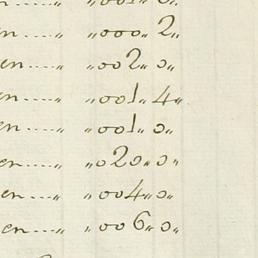 en----„ „000„2„
en----„ „002„0„
en----„ „001„4„
en----„ „001„0„
en----„ „020„0„
en----„ „004„0„
en----„ „006„0„